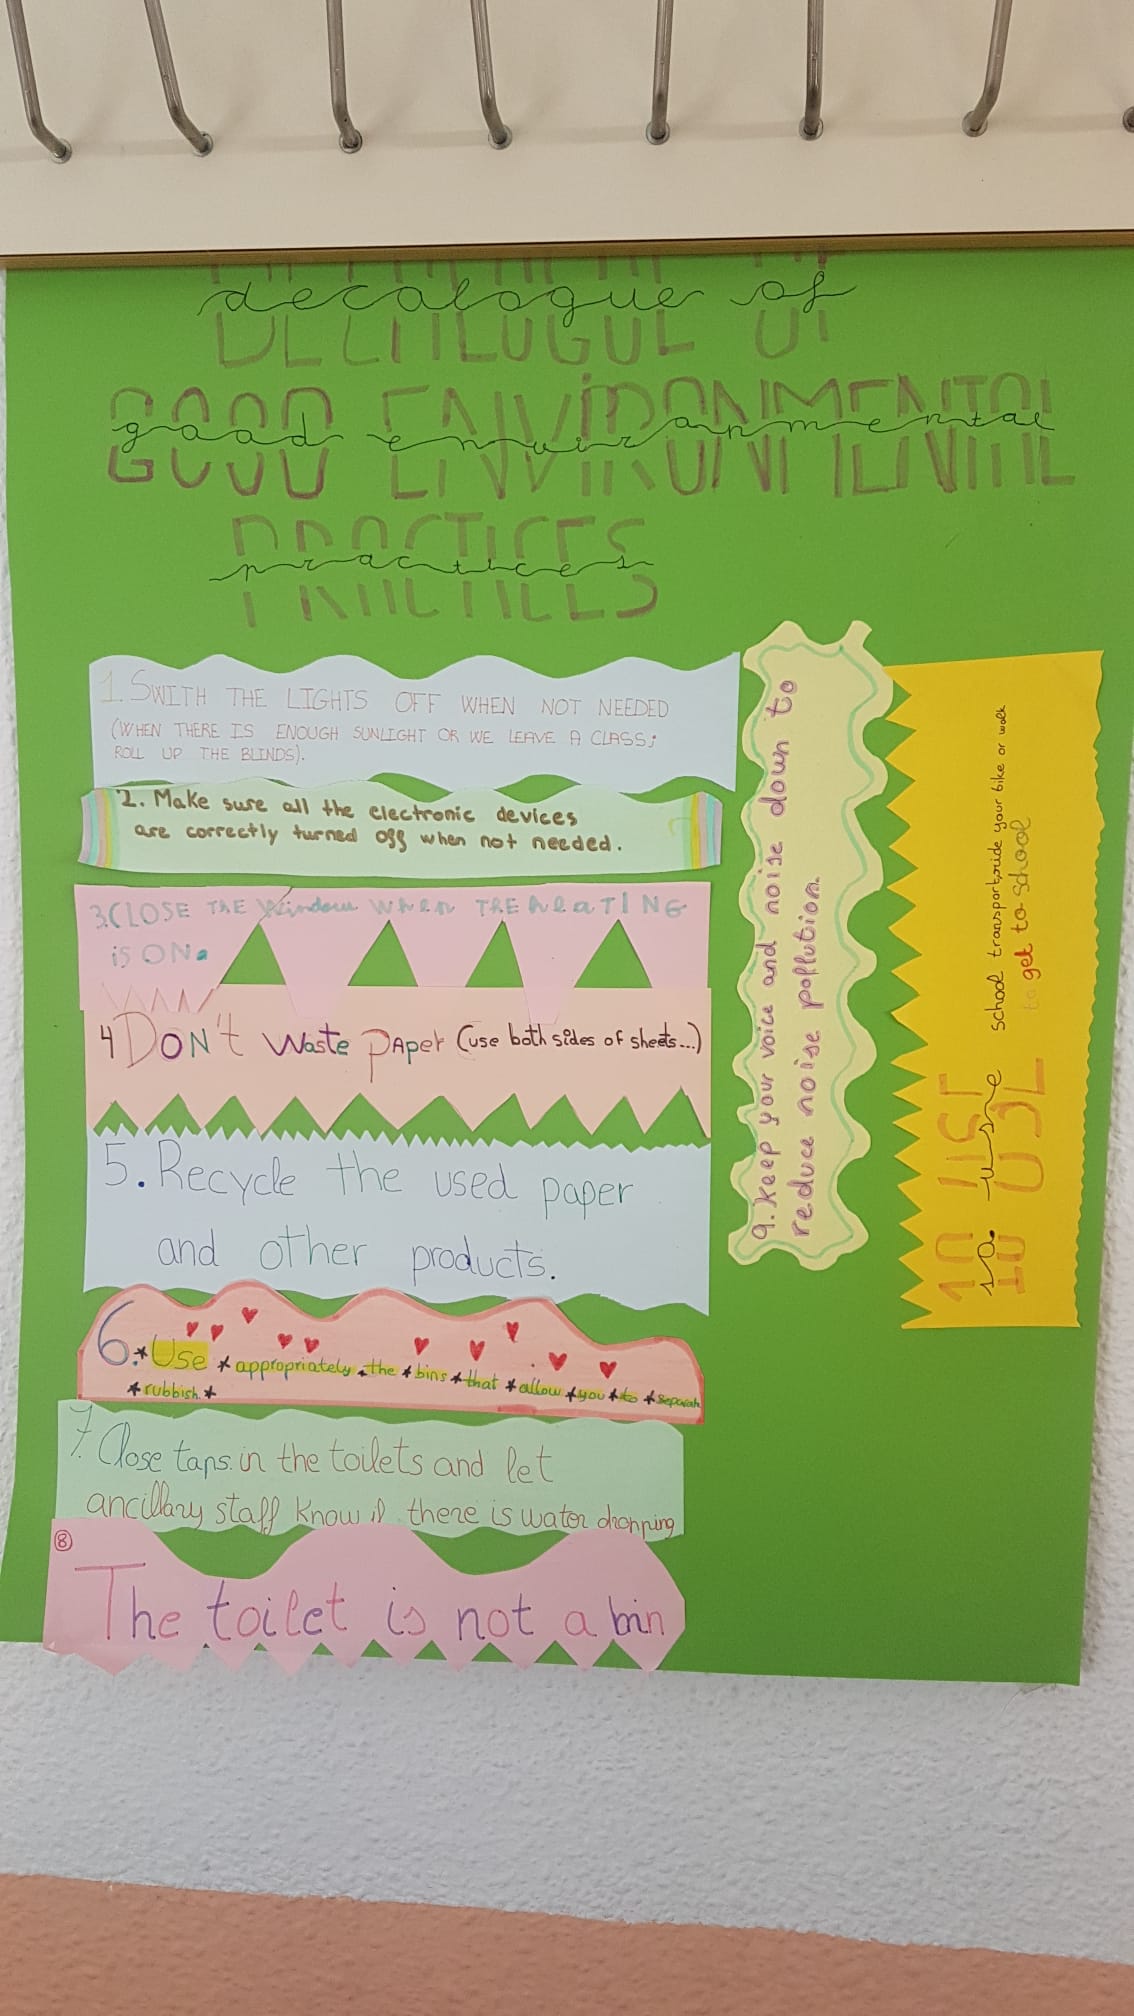 decalogue of
DECALOGUE OF
good environmental
GOOD ENVIRONMENTAL
practices
PRACTICES
1. SWITH THE LIGHTS OFF WHEN NOT NEEDED
(WHEN THERE IS ENOUGH SUNLIGHT OR WE LEAVE A CLASS;
ROLL UP THE BLINDS).
2. Make sure all the electronic devices
are correctly turned off when not needed.
3.CLOSE THE Window WHEN THE HEATING
is ON.
4 DON't Waste PAPer (use both sides of sheets...)
5. Recycle the used paper
and other products.
6.*Use *appropriately *the *bins *that *allow *you *to *separate
*rubbish.*
7. Close taps in the toilets and let
ancillary staff know if there is water dropping
8
The toilet is not a bin
9. Keep your voice and noise down to
reduce noise pollution.
10 USE
10. use school transport, ride your bike or walk
to get to school